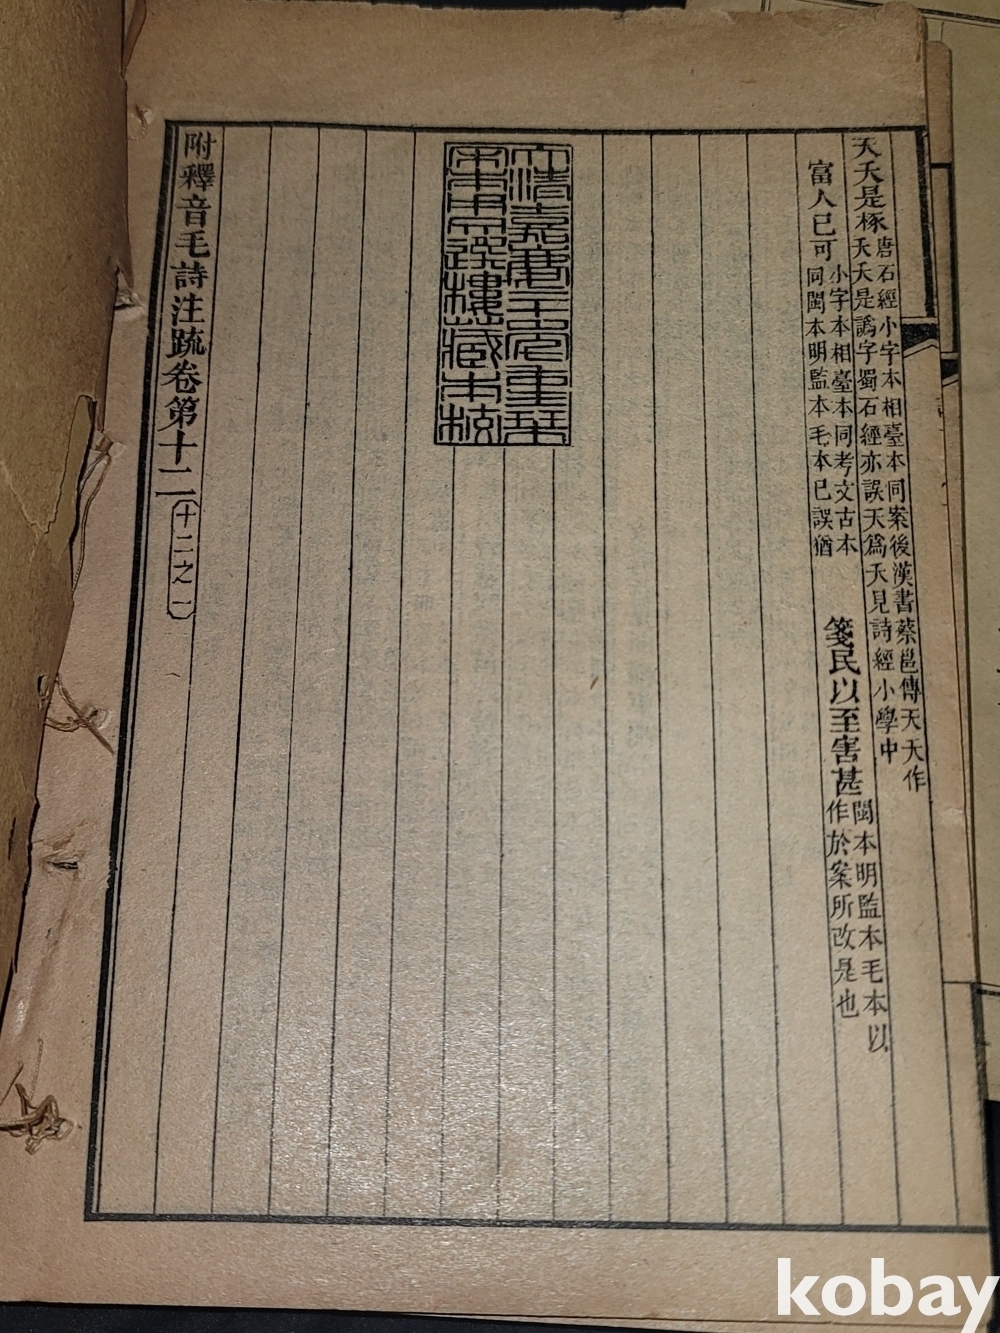 天夭是椓
唐石經小字本相臺本同案後漢書蔡邕傳天夭作
夭夭是譌字蜀石經亦誤天為夭見詩經小學中
富人已可
小字本相臺本同考文古本
同閩本明監本毛本已誤猶
箋民以至害甚
閩本明監本毛本以
作於案所改是也
大清嘉慶二十年重栞
宋本用文選樓藏本校
附釋音毛詩注疏卷第十二 十二之一
kobay